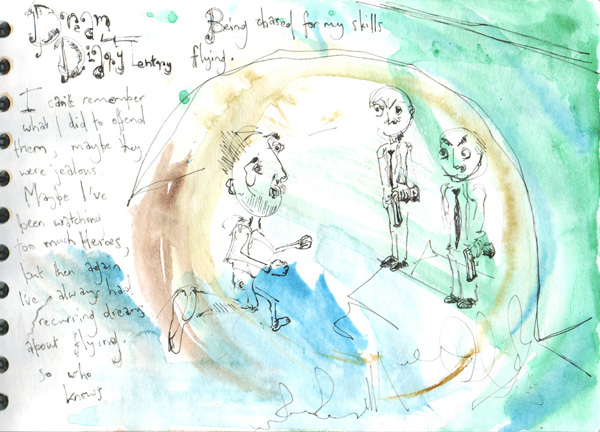 Dream
Diary 1 entry
Being chased for my skills
flying.
I can't remember
what I did to offend
them, maybe they
were jealous.
Maybe I've
been watching
too much Heroes,
but then again
I've always had
recurring dreams
about flying.
so who
knows